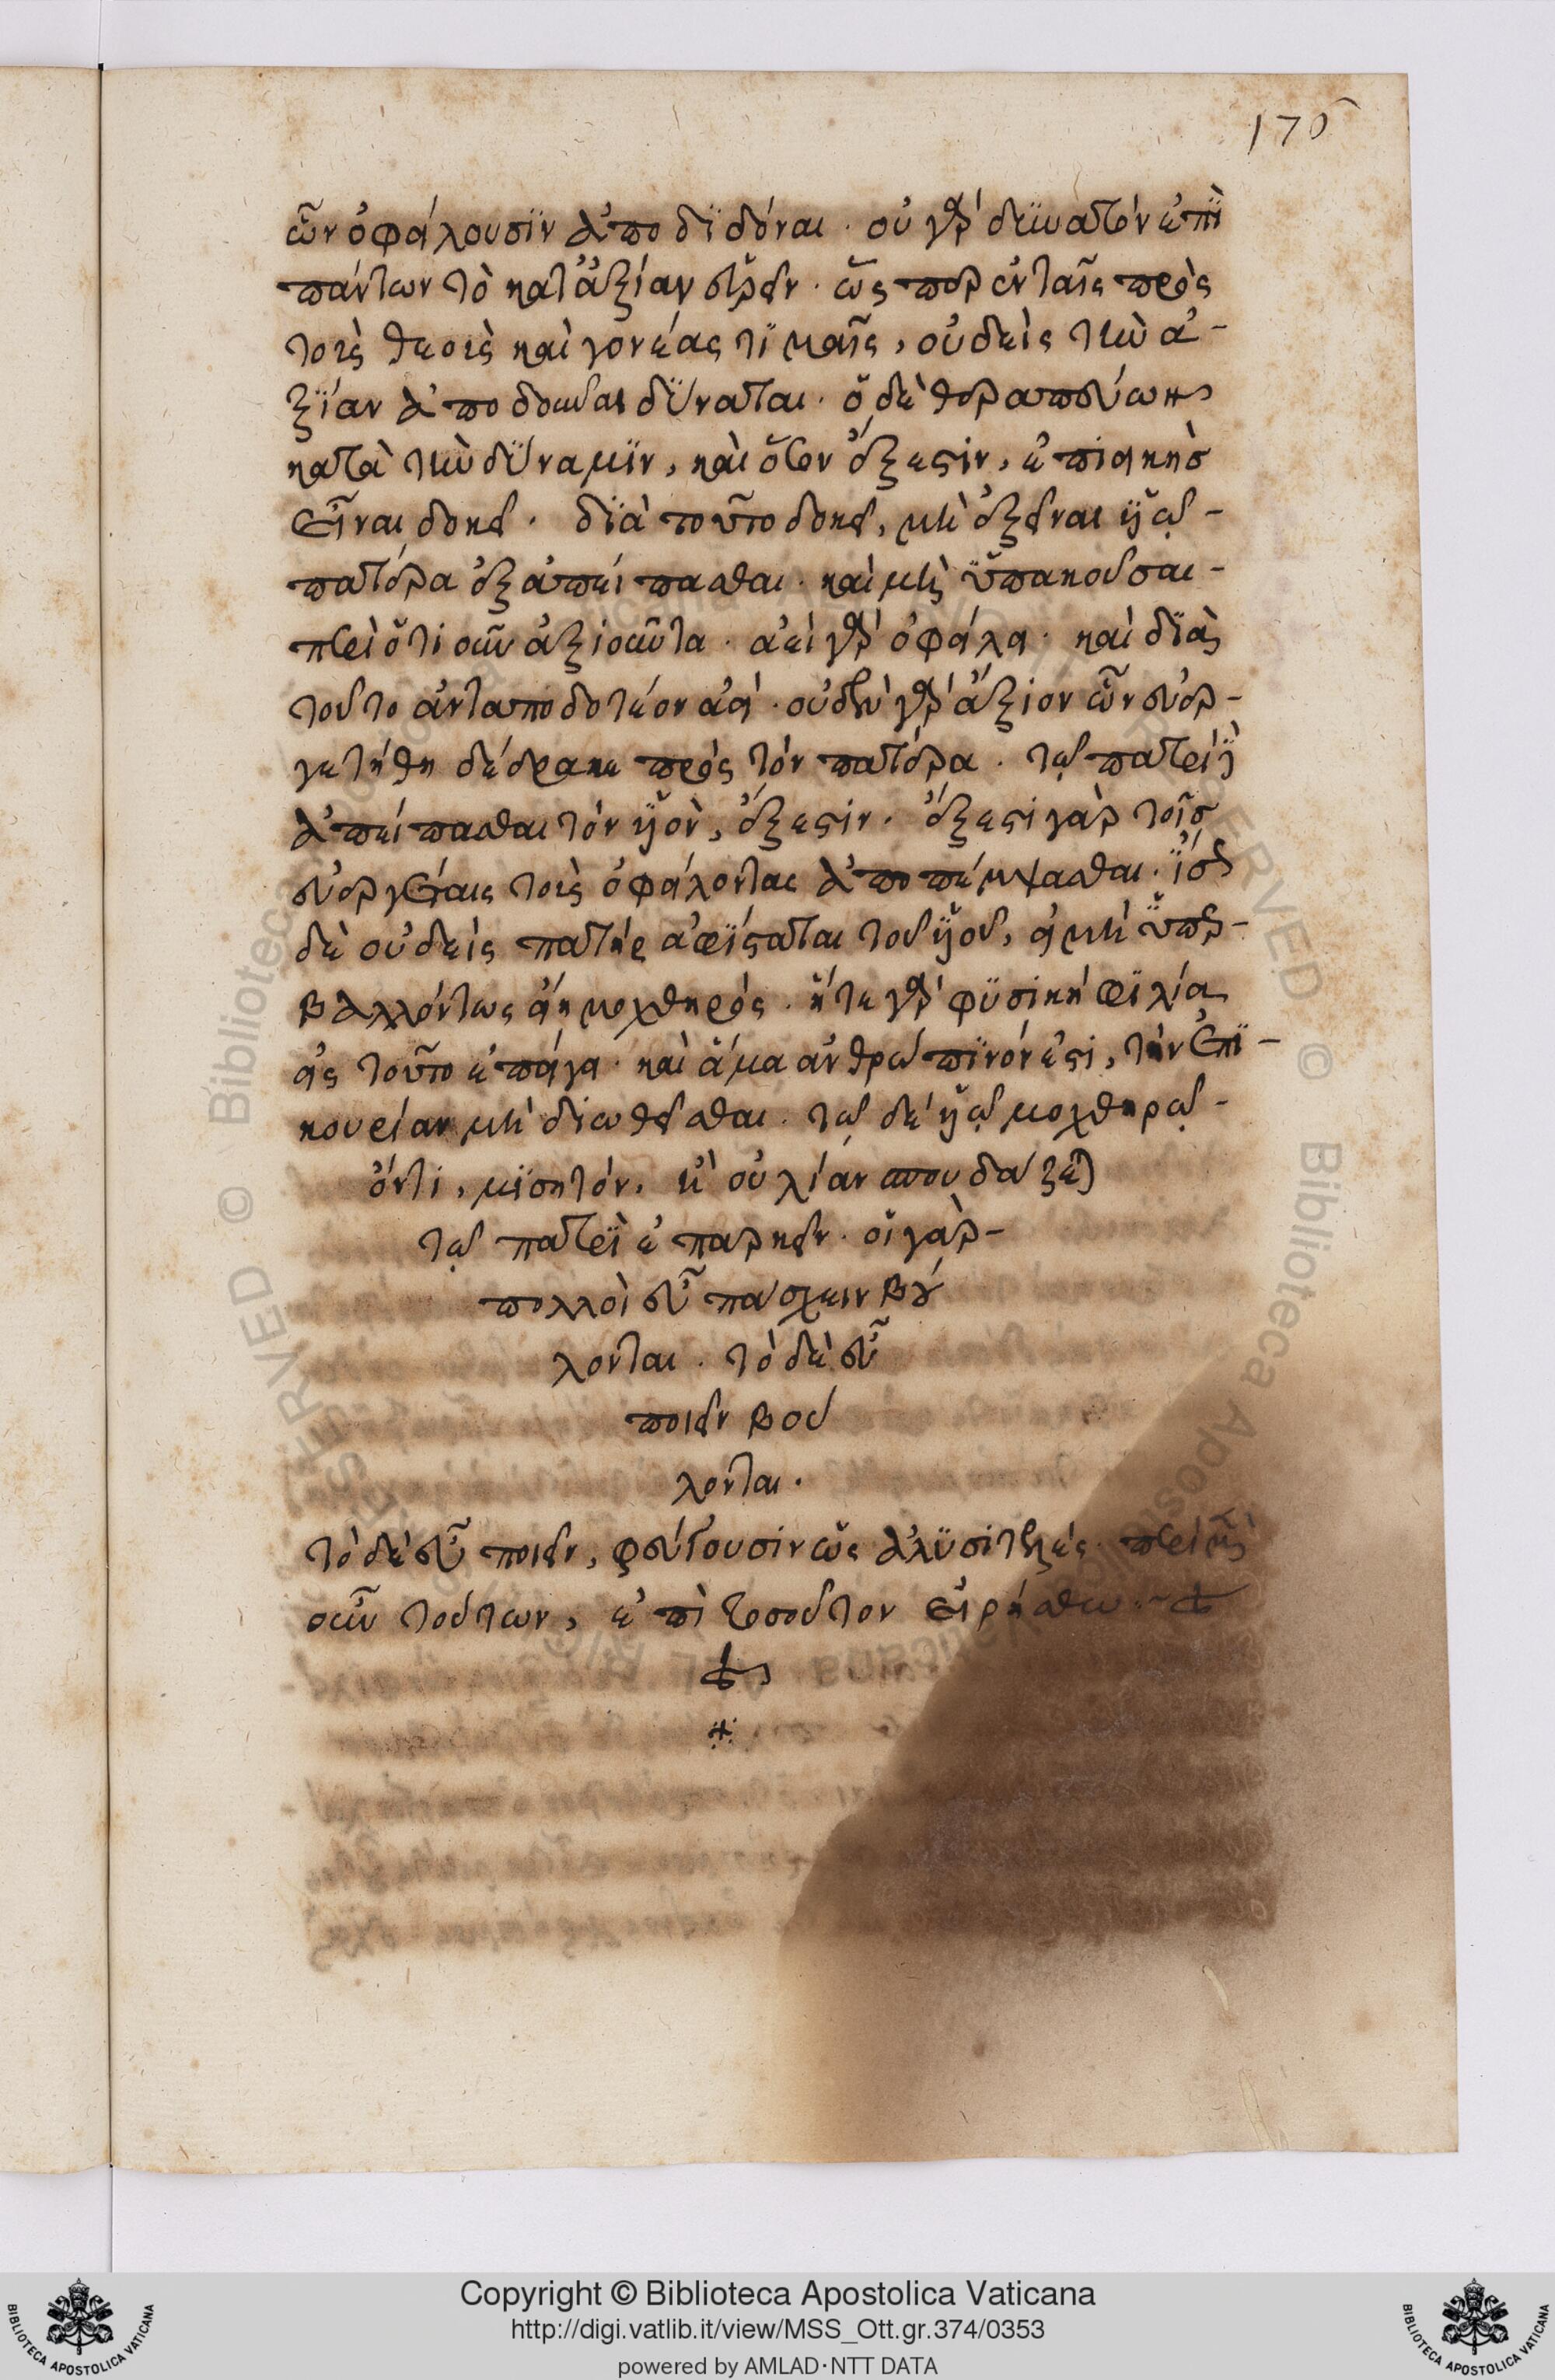 175
ὧν ὀφείλουσϊν ἀποδϊδόναι · οὐ γὰρ δυνατὸν ἐπὶ
πάντων τὸ κατἀξίαν εὑρεῖν · ὥς περ ἐν ταῖς πρὸς
τοὺς θεοὺς καὶ γονέας τϊμαῖς, οὐδεὶς τὴν ἀ-
ξΐαν ἀποδοῦναι δΰναται · ὁ δὲ θεραπεύων
κατὰ τὴν δΰναμϊν, καὶ ὅσον ἔξεστιν, ἐπιεικὴσ
εἶναι δοκεῖ · δϊὰ τοῦτο δοκεῖ, μὴ ἐξεῖναι ὑῷ-
πατέρα ἐξαπείπασθαι · καὶ μὴ ὑπακοῦσαι-
περὶ ὅτι οὖν ἀξιοῦντα · ἀεὶ γὰρ ὀφείλει · καὶ δϊὰ
τοῦτο ἀνταποδοτέον ἀεί · οὐδὲν γὰρ ἄξιον ὧν εὐερ-
γετήθη δέδρακε πρὸς τὸν πατέρα · τῷ πατρὶ
ἀπείπασθαι τὸν ὑὸν, ἔξεστιν · ἔξεστι γὰρ τοῖσ
εὐεργέταις τοὺς ὀφείλοντας ἀποπέμψασθαι ·
δὲ οὐδεὶς πατὴρ ἀφΐσταται τοῦ ὑοῦ, εἰ μὴ ὑπερ-
βαλλόντως εἴη μοχθηρός · ἥτε γὰρ φϋσικὴ φϊλία
εἰς τοῦτο ἐπάγει · καὶ ἅμα ἀνθρώπϊνόν ἐστι, τὴν ἐπϊ-
κουρίαν μὴ διωθεῖσθαι · τῷ δὲ ὑῷ μοχθηρῷ-
ὄντι, μϊσητόν, ἢ οὐ λίαν σπουδάζεται
τῷ πατρϊ ἐπαρκεῖν · οἱ γὰρ-
πολλοὶ εὖ πάσχειν βού
λονται · τὸ δὲ εὖ
ποιεῖν βού
λονται ·
τὸ δὲ εὖ ποιεῖν, φεύγουσιν ὡς ἀλϋσιτελές · περὶ μὲν
οὖν τούτων, ἐπὶ τοσοῦτον εἰρήσθω
Copyright © Biblioteca Apostolica Vaticana
http://digi.vatlib.it/view/MSS_Ott.gr.374/0353
powered by AMLAD·NTT DATA
BIBLIOTECA APOSTOLICA VATICANA
BIBLIOTECA APOSTOLICA VATICANA